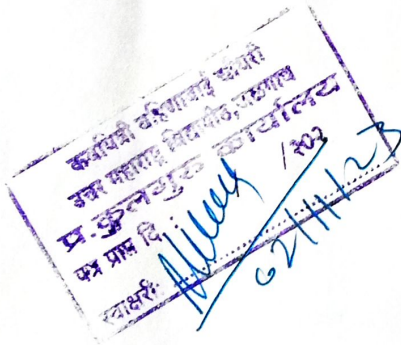 कवयित्री बहिणाबाई चौधरी
उत्तर महाराष्ट्र विद्यापीठ, जळगाव
प्र. कुलगुरू कार्यालय
पत्र प्राप्त दि. /२०२
स्वाक्षरी:
02/11/23